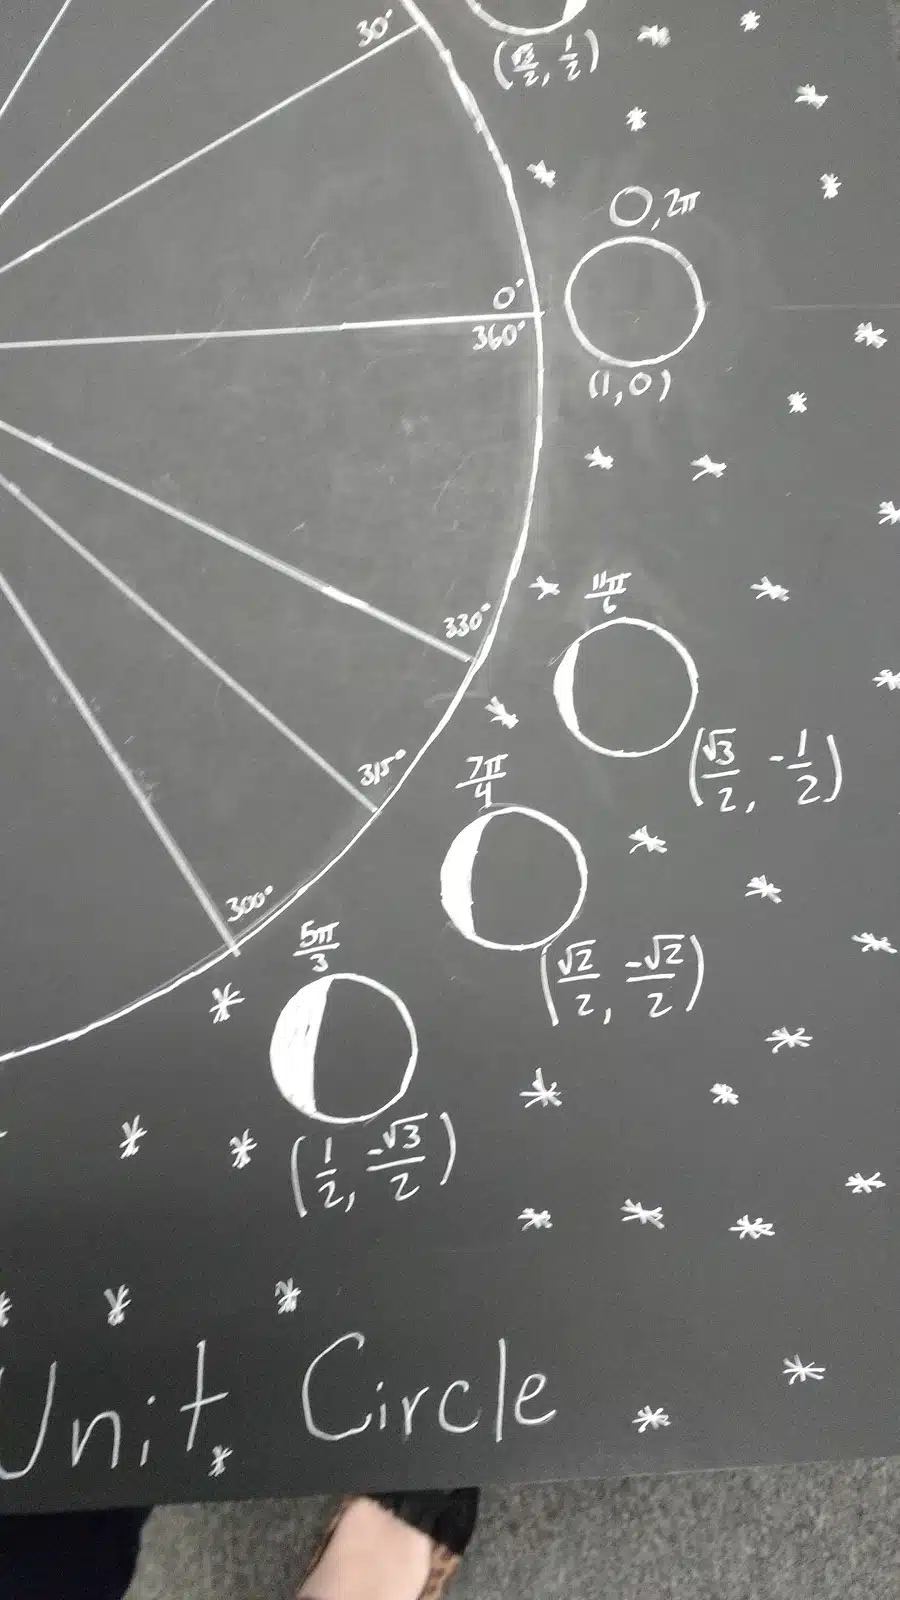 30°
(√3/2, 1/2)
0, 2π
0°
360°
(1, 0)
11π/6
330°
(√3/2, -1/2)
7π/4
315°
(√2/2, -√2/2)
300°
5π/3
(1/2, -√3/2)
Unit Circle